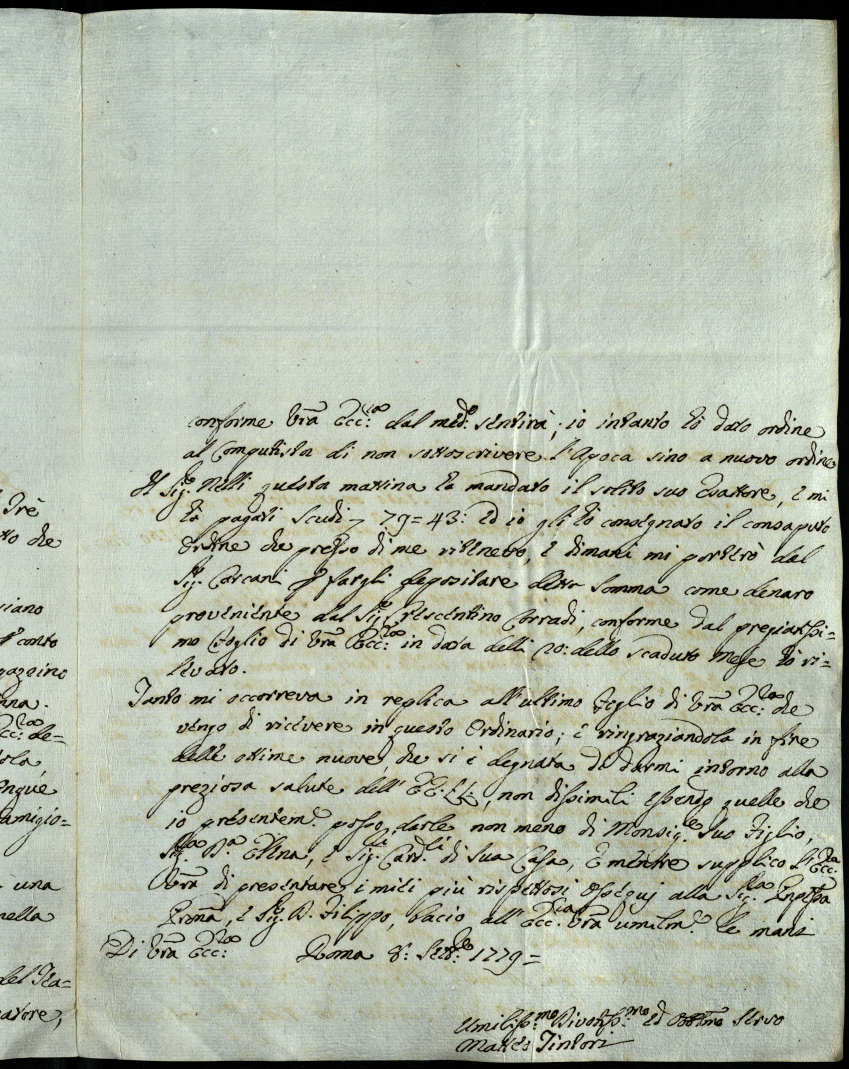 Trè
tto che
siano
conto
gazzino
nna.
Ecc:za de=
tola,
nque
amigio=
una
nella
del Tea=
atore,
conforme Vrã Ecc:za dal med:o sentirà; io intanto hò dato ordine
al Computista di non sottoscrivere l'Apoca sino a nuovo ordine
Il Sig:r Nelli questa mattina hà mandato il solito suo Esattore, e mi
hà pagati Scudi 79=43: ed io gli hò consegnato il consaputo
Ordine che presso di me ritenevo, e dimani mi porterò dal
Sig:r per fargli depositare detta somma come denaro
proveniente dal Sig:r Crescentino Corradi, conforme dal pregiatissi=
mo Foglio di Vrã Ecc:za in data delli 20: dello scaduto Mese hò ri=
levato.
Tanto mi occorreva in replica all'ultimo Foglio di Vrã Ecc:za che
vengo di ricevere in questo Ordinario; e ringraziandola in fine
delle ottime nuove, che si è degnata di darmi intorno alla
preziosa salute dell' EE.LL., non dissimili essendo quelle che
io presentem:e posso darle non meno di Monsig:re Suo Figlio,
Sig:ra D:a Elena, e Sig:ri Card:li di Sua Casa, E mentre supplico l'Ecc:za
Vrã di presentare i miei più rispettosi ossequj alla Sig:ra Pnpessa
e Sig:r D. Filippo, bacio all'Ecc:za Vrã umilm:e le mani
Di Vrã Ecc:za Roma 8: Sett:bre 1779=
Umiliss:mo Divotiss:mo ed Obblmo Servo
Matteo Tintori